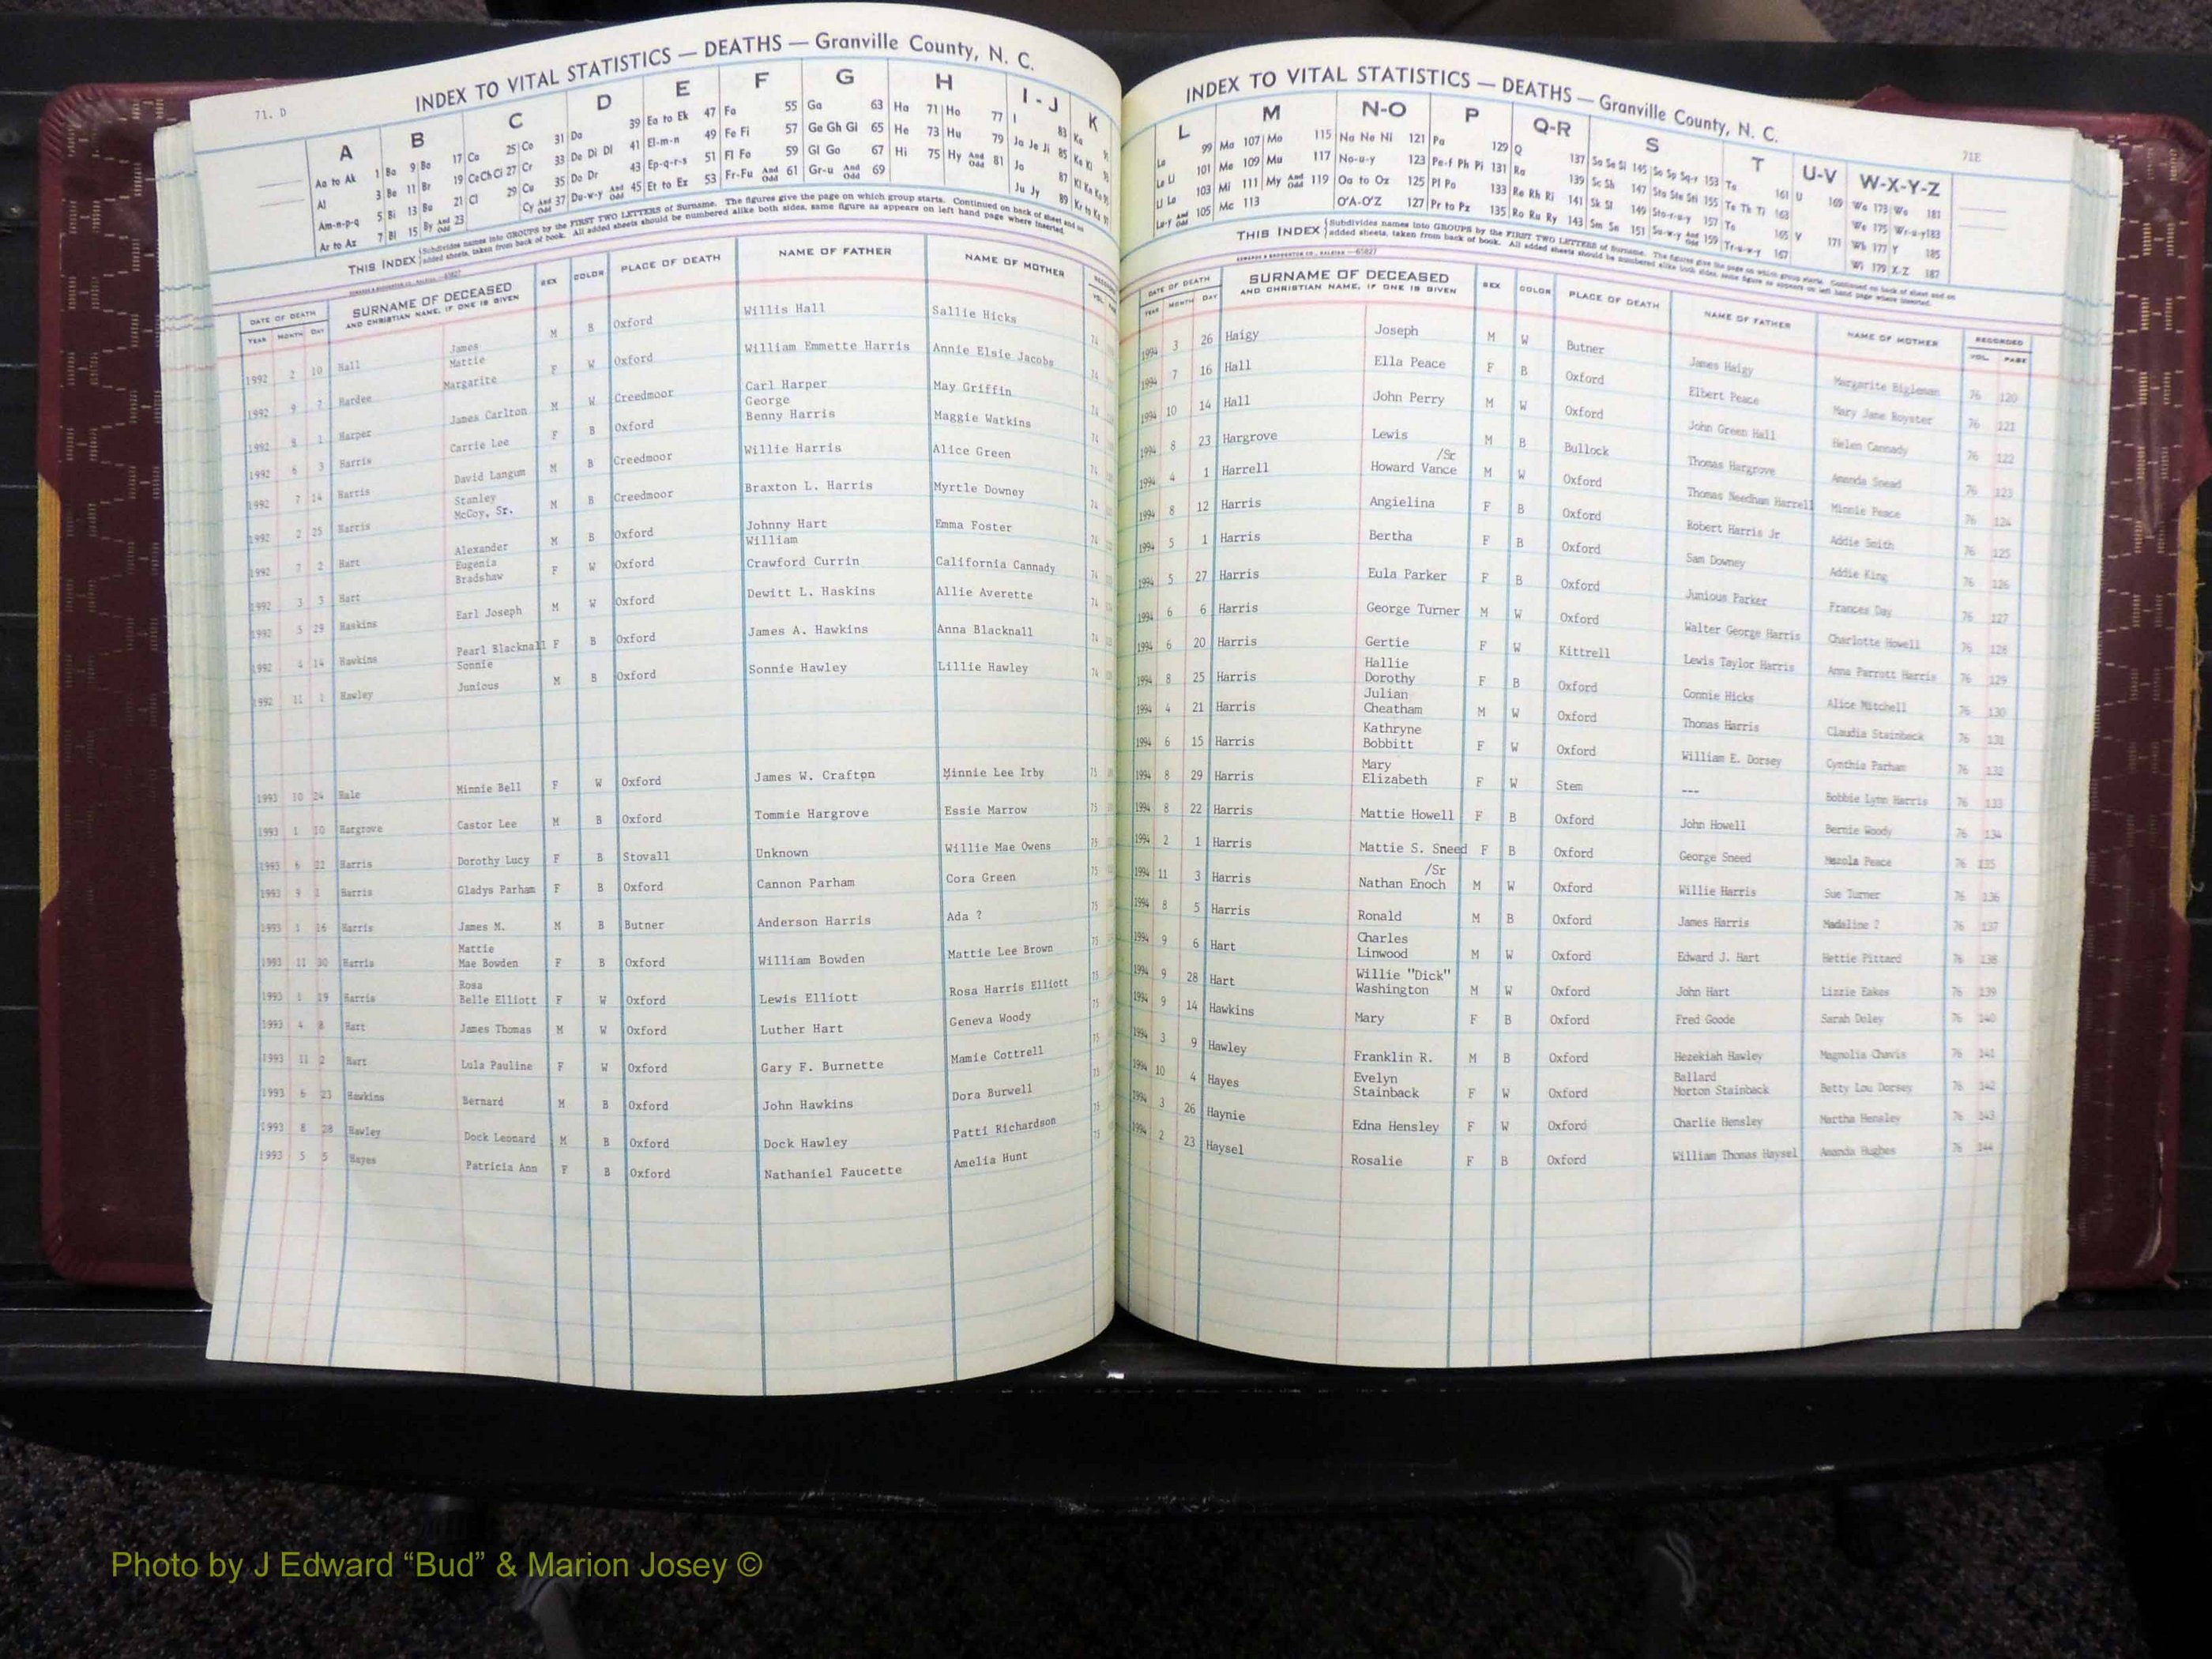 71. D
INDEX TO VITAL STATISTICS — DEATHS — Granville County, N. C.
A B C D E F G H I - J K
Aa to Ak 1 Ba 9 Bo 17 Ca 25 Co 31 Da 39 Ea to Ek 47 Fa 55 Ga 63 Ha 71 Ho 77 I 83 Ka
Al 3 Be 11 Br 19 Ce Ch Ci 27 Cr 33 De Di Dl 41 El-m-n 49 Fe Fi 57 Ge Gh Gi 65 He 73 Hu 79 Ja Je Ji 85 Ke Ki
Am-n-p-q 5 Bi 13 Bu 21 Cl 29 Cu 35 Do Dr 43 Ep-q-r-s 51 Fl Fo 59 Gl Go 67 Hi 75 Hy And Odd 81 Jo 87
Ar to Az 7 Bl 15 By And Odd 23 Cy And Odd 37 Du-w-y And Odd 45 Et to Ez 53 Fr-Fu And Odd 61 Gr-u And Odd 69 Ju Jy 89
THIS INDEX Subdivides names into GROUPS by the FIRST TWO LETTERS of Surname. The figures give the page on which group starts. Continued on back of sheet and on
added sheets, taken from back of book. All added sheets should be numbered alike both sides, same figure as appears on left hand page where inserted.
DATE OF DEATH SURNAME OF DECEASED SEX COLOR PLACE OF DEATH NAME OF FATHER NAME OF MOTHER
YEAR MONTH DAY AND CHRISTIAN NAME, IF ONE IS GIVEN
1992 2 10 Hall James M B Oxford Willis Hall Sallie Hicks 74
1992 9 7 Hardee Mattie Margarite F W Oxford William Emmette Harris Annie Elsie Jacobs 74
1992 8 1 Harper James Carlton M W Creedmoor Carl Harper May Griffin 74
1992 6 3 Harris Carrie Lee F B Oxford George Benny Harris Maggie Watkins 74
1992 7 14 Harris David Langum M B Creedmoor Willie Harris Alice Green 74
1992 2 25 Harris Stanley McCoy, Sr. M B Creedmoor Braxton L. Harris Myrtle Downey 74
1992 7 2 Hart Alexander M B Oxford Johnny Hart Emma Foster 74
1992 3 3 Hart Eugenia Bradshaw F W Oxford William Crawford Currin California Cannady 74
1992 5 29 Haskins Earl Joseph M W Oxford Dewitt L. Haskins Allie Averette 74
1992 4 14 Hawkins Pearl Blacknall F B Oxford James A. Hawkins Anna Blacknall 74
1992 11 2 Hawley Sonnie Junious M B Oxford Sonnie Hawley Lillie Hawley 74
1993 10 24 Hale Minnie Bell F W Oxford James W. Crafton Minnie Lee Irby 75
1993 1 10 Hargrove Castor Lee M B Oxford Tommie Hargrove Essie Marrow 75
1993 6 22 Harris Dorothy Lucy F B Stovall Unknown Willie Mae Owens 75
1993 9 1 Harris Gladys Parham F B Oxford Cannon Parham Cora Green 75
1993 1 16 Harris James M. M B Butner Anderson Harris Ada ? 75
1993 11 30 Harris Mattie Mae Bowden F B Oxford William Bowden Mattie Lee Brown 75
1993 1 19 Harris Rosa Belle Elliott F W Oxford Lewis Elliott Rosa Harris Elliott 75
1993 4 8 Hart James Thomas M W Oxford Luther Hart Geneva Woody 75
1993 11 2 Hart Lula Pauline F W Oxford Gary F. Burnette Mamie Cottrell 75
1993 6 23 Hawkins Bernard M B Oxford John Hawkins Dora Burwell 75
1993 8 28 Hawley Dock Leonard M B Oxford Dock Hawley Patti Richardson 75
1993 5 5 Hayes Patricia Ann F B Oxford Nathaniel Faucette Amelia Hunt 75
71E
INDEX TO VITAL STATISTICS — DEATHS — Granville County, N. C.
L M N-O P Q-R S T U-V W-X-Y-Z
La 99 Ma 107 Mo 115 Na Ne Ni 121 Pa 129 Q 137 Sa Se Si 145 So Sp Sq-r 153 Ta 161 U 169 Wa 173 Wo 181
Le Ll 101 Me 109 Mu 117 No-u-y 123 Pe-f Ph Pi 131 Ra 139 Sc Sh 147 Sta Ste Sti 155 Te Th Ti 163 We 175 Wr-u-y 183
Li Lo 103 Mi 111 My And Odd 119 Oa to Oz 125 Pl Po 133 Re Rh Ri 141 Sk Sl 149 Sto-r-u-y 157 To 165 V 171 Wh 177 Y 185
Lu-y And Odd 105 Mc 113 O'A-O'Z 127 Pr to Pz 135 Ro Ru Ry 143 Sm Sn 151 Su-w-y And Odd 159 Tr-u-w-y 167 Wi 179 X-Z 187
THIS INDEX Subdivides names into GROUPS by the FIRST TWO LETTERS of Surname. The figures give the page on which group starts. Continued on back of sheet and on
added sheets, taken from back of book. All added sheets should be numbered alike both sides, same figure as appears on left hand page where inserted.
DATE OF DEATH SURNAME OF DECEASED SEX COLOR PLACE OF DEATH NAME OF FATHER NAME OF MOTHER RECORDED
YEAR MONTH DAY AND CHRISTIAN NAME, IF ONE IS GIVEN VOL. PAGE
1994 3 26 Haigy Joseph M W Butner James Haigy Margarite Bigleman 76 120
1994 7 16 Hall Ella Peace F B Oxford Elbert Peace Mary Jane Royster 76 121
1994 10 14 Hall John Perry M W Oxford John Green Hall Helen Cannady 76 122
1994 8 23 Hargrove Lewis M B Bullock Thomas Hargrove Amanda Snead 76 123
1994 4 1 Harrell Howard Vance /Sr M W Oxford Thomas Needham Harrell Minnie Peace 76 124
1994 8 12 Harris Angielina F B Oxford Robert Harris Jr Addie Smith 76 125
1994 5 1 Harris Bertha F B Oxford Sam Downey Addie King 76 126
1994 5 27 Harris Eula Parker F B Oxford Junious Parker Frances Day 76 127
1994 6 6 Harris George Turner M W Oxford Walter George Harris Charlotte Howell 76 128
1994 6 20 Harris Gertie F W Kittrell Lewis Taylor Harris Anna Parrott Harris 76 129
1994 8 25 Harris Hallie Dorothy F B Oxford Connie Hicks Alice Mitchell 76 130
1994 4 21 Harris Julian Cheatham M W Oxford Thomas Harris Claudia Stainback 76 131
1994 6 15 Harris Kathryne Bobbitt F W Oxford William E. Dorsey Cynthia Parham 76 132
1994 8 29 Harris Mary Elizabeth F W Stem --- Bobbie Lynn Harris 76 133
1994 8 22 Harris Mattie Howell F B Oxford John Howell Bernie Woody 76 134
1994 2 1 Harris Mattie S. Sneed F B Oxford George Sneed Peace 76 135
1994 11 3 Harris Nathan Enoch /Sr M W Oxford Willie Harris Sue Turner 76 136
1994 8 5 Harris Ronald M B Oxford James Harris Madaline ? 76 137
1994 9 6 Hart Charles Linwood M W Oxford Edward J. Hart Hettie Pittard 76 138
1994 9 28 Hart Willie "Dick" Washington M W Oxford John Hart Lizzie Eakes 76 139
1994 9 14 Hawkins Mary F B Oxford Fred Goode Sarah Doley 76 140
1994 3 9 Hawley Franklin R. M B Oxford Hezekiah Hawley Magnolia Chavis 76 141
1994 10 4 Hayes Evelyn Stainback F W Oxford Ballard Morton Stainback Betty Lou Dorsey 76 142
1994 3 26 Haynie Edna Hensley F W Oxford Charlie Hensley Martha Hensley 76 143
1994 2 23 Haysel Rosalie F B Oxford William Thomas Haysel Amanda Hughes 76 144
Photo by J Edward “Bud” & Marion Josey ©